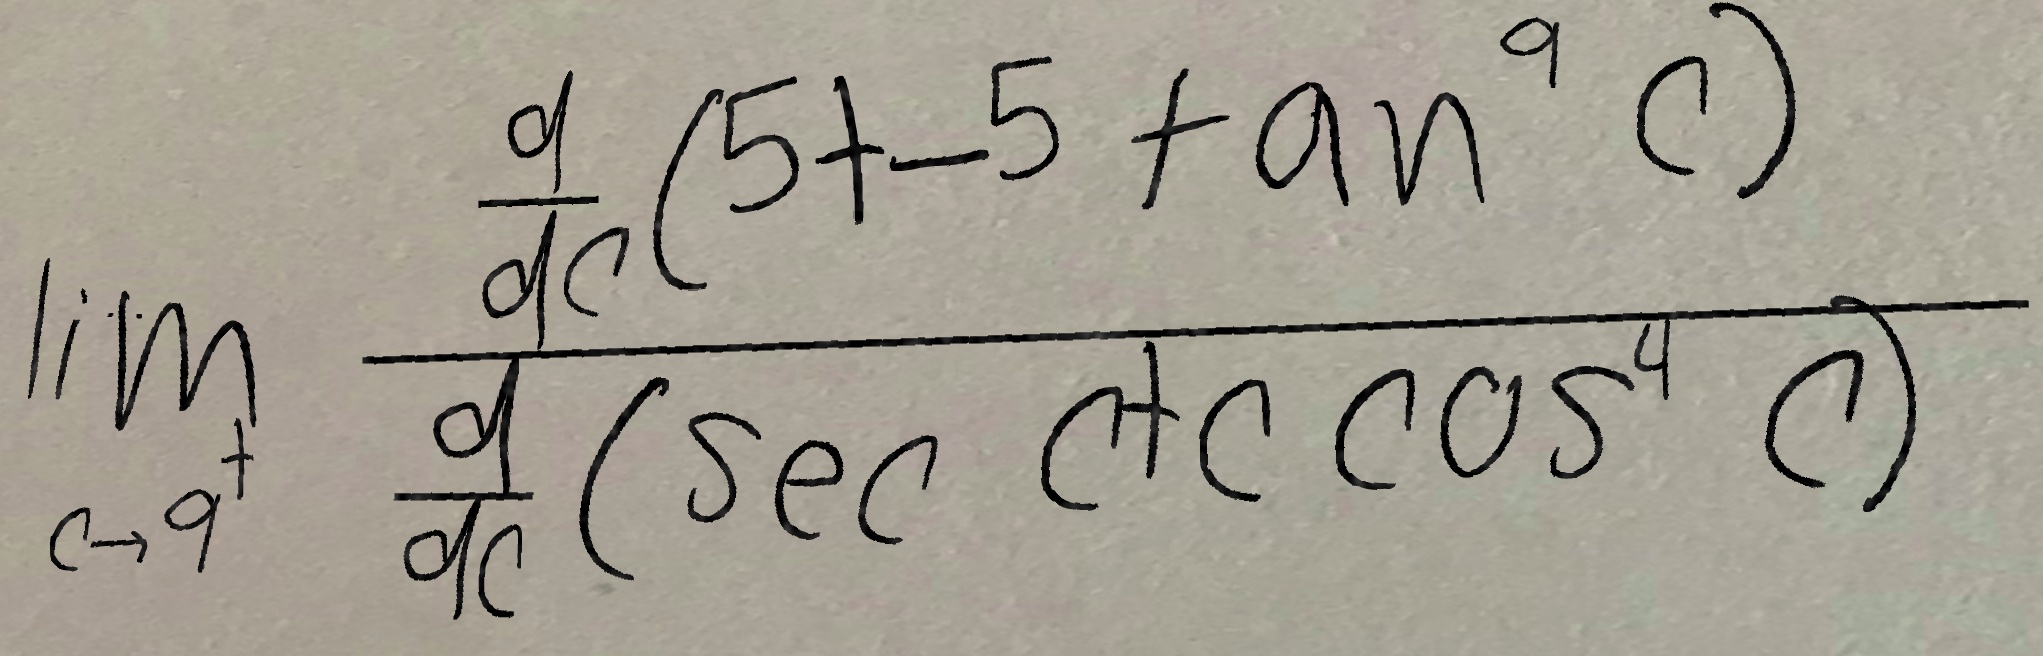 \lim_{c \to 9^+} \frac{\frac{d}{dc}(5+-5\tan^9 c)}{\frac{d}{dc}(\sec c+c\cos^4 c)}